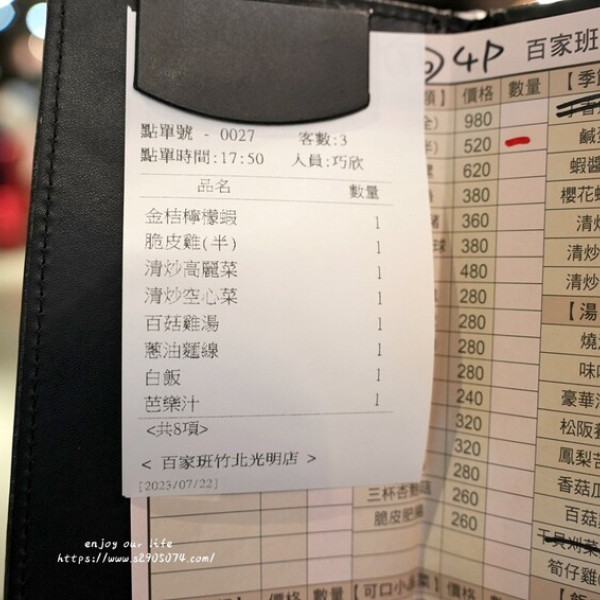 點單號 - 0027 客數:3
點單時間:17:50 人員:巧欣
品名 數量
金桔檸檬蝦 1
脆皮雞(半) 1
清炒高麗菜 1
清炒空心菜 1
百菇雞湯 1
蔥油麵線 1
白飯 1
芭樂汁 1
<共8項>
< 百家班竹北光明店 >
[2023/07/22]
4P 百家班
價格 數量 【季
980
520
620 蝦醬
380 櫻花
360 清炒
380 清炒
480 清炒
280 【湯
280
280
240 豪華
320 松阪
320 鳳梨苦
280 香菇
三杯杏鮑菇 260 百菇
脆皮肥腸 260
筍仔雞
數量 【可口小 】 價格 數量
enjoy our life
https://www.s2905074.com/